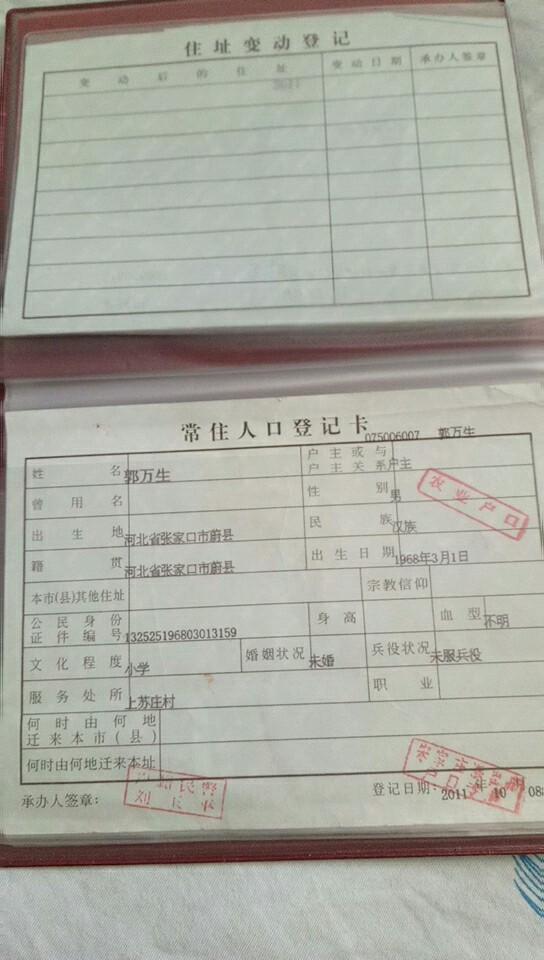 住址变动登记
变动后的住址 变动日期 承办人签章
常住人口登记卡
075006007 郭万生
姓名 郭万生 户主或与户主关系 户主
曾用名 性别 男
农业户口
出生地 河北省张家口市蔚县 民族 汉族
籍贯 河北省张家口市蔚县 出生日期 1968年3月1日
本市(县)其他住址 宗教信仰
公民身份证件编号 132525196803013159 身高 血型 不明
文化程度 小学 婚姻状况 未婚 兵役状况 未服兵役
服务处所 上苏庄村 职业
何时由何地迁来本市(县)
何时由何地迁来本址
承办人签章: 登记日期: 2011 年 10 月 08